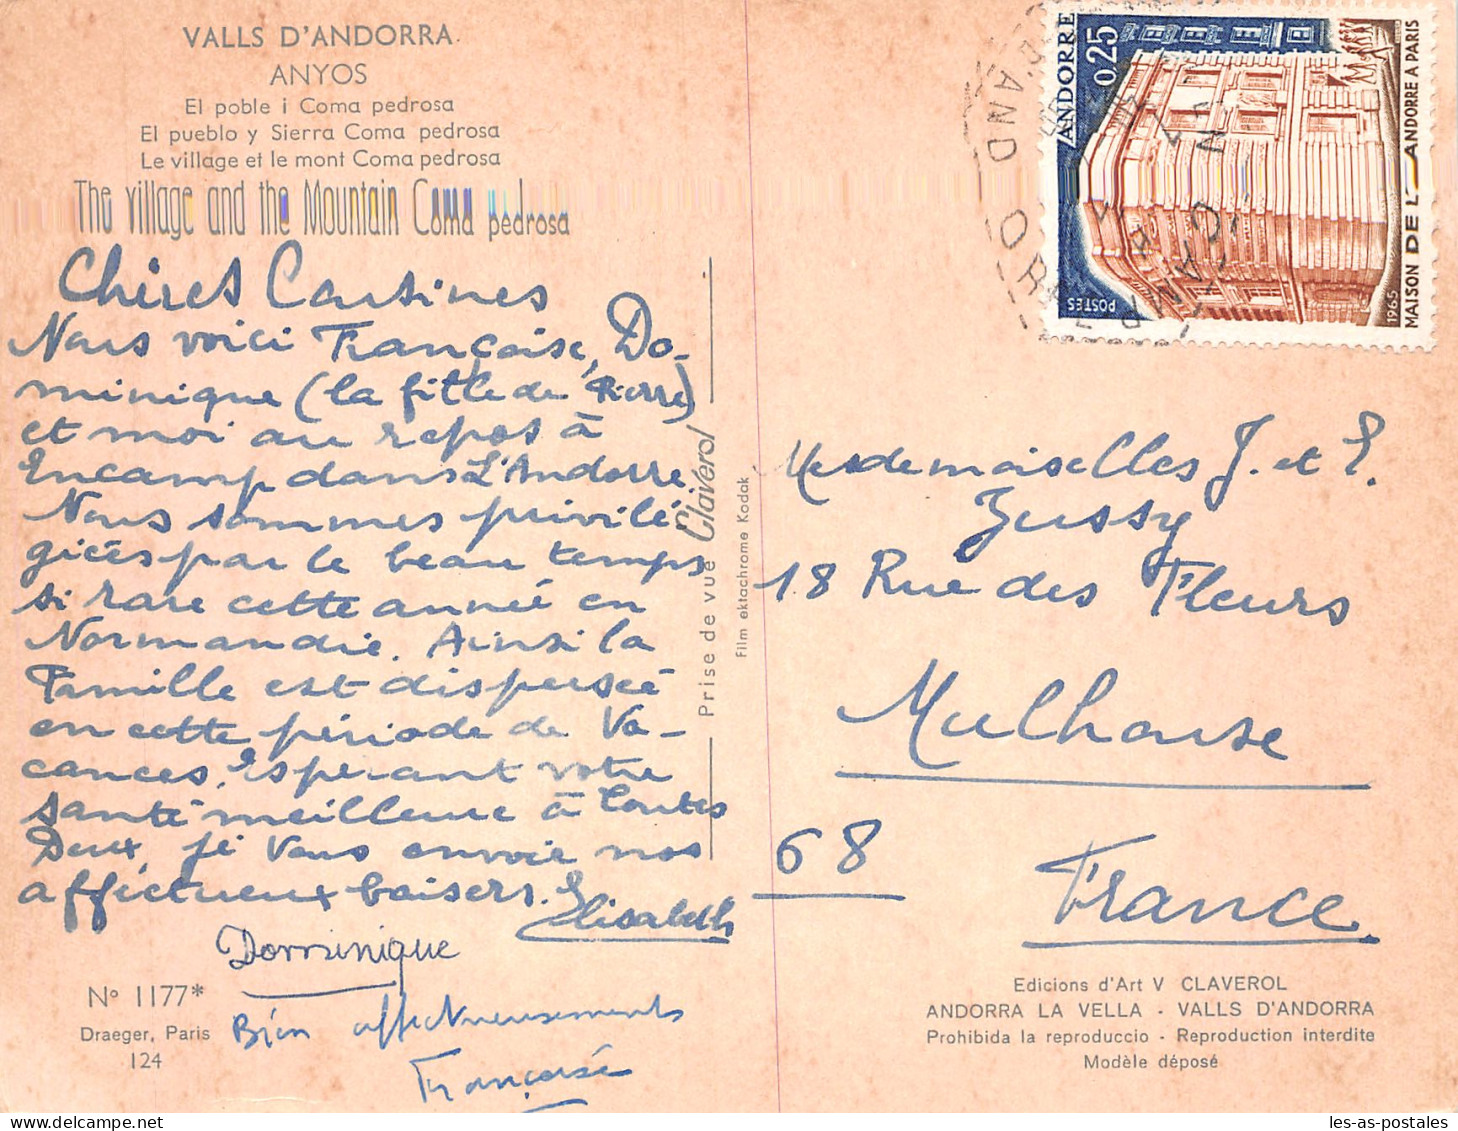 VALLS D'ANDORRA
ANYOS
El poble i Coma pedrosa
El pueblo y Sierra Coma pedrosa
Le village et le mont Coma pedrosa
The village and the Mountain Coma pedrosa
Chères Cousines
Nous voici Françoise, Do-
minique (la fille de Pierre)
et moi au repos à
Encamp dans L'Andorre.
Nous sommes privilé
giées par le beau temps
si rare cette année en
Normandie. Ainsi la
Famille est dispersée
en cette période de Va-
cances. Espérant votre
santé meilleure à toutes
Deux, je vous envoie nos
affectueux baisers.
Elisabeth
Dominique
Bien affectueusements
Françoise
Nº 1177*
Draeger, Paris
124
Prise de vue Claverol
Film ektachrome Kodak
ANDORRE
0,25
POSTES
1965
MAISON DE L'ANDORRE A PARIS
Mesdemoiselles J. et E.
Jussy
18 Rue des Fleurs
Mulhouse
68
France
Edicions d'Art V CLAVEROL
ANDORRA LA VELLA - VALLS D'ANDORRA
Prohibida la reproduccio - Reproduction interdite
Modèle déposé
les-as-postales